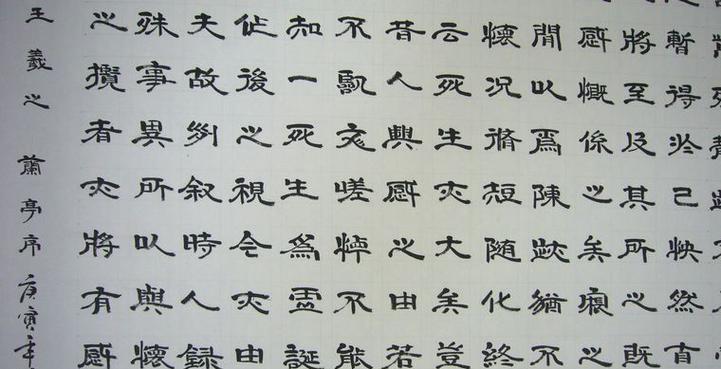 暫得於己怏然自
將至及其所之既
感慨係之矣之
閒以爲陳跡猶不
懷況脩短随化終
云死生亦大矣豈
昔人興感之由若
不臨文嗟悼不能
知一死生爲虛誕
作後之視今亦由
夫故列叙時人録
殊事異所以興懷
之攬者亦將有感
王羲之 蘭亭序 庚寅年